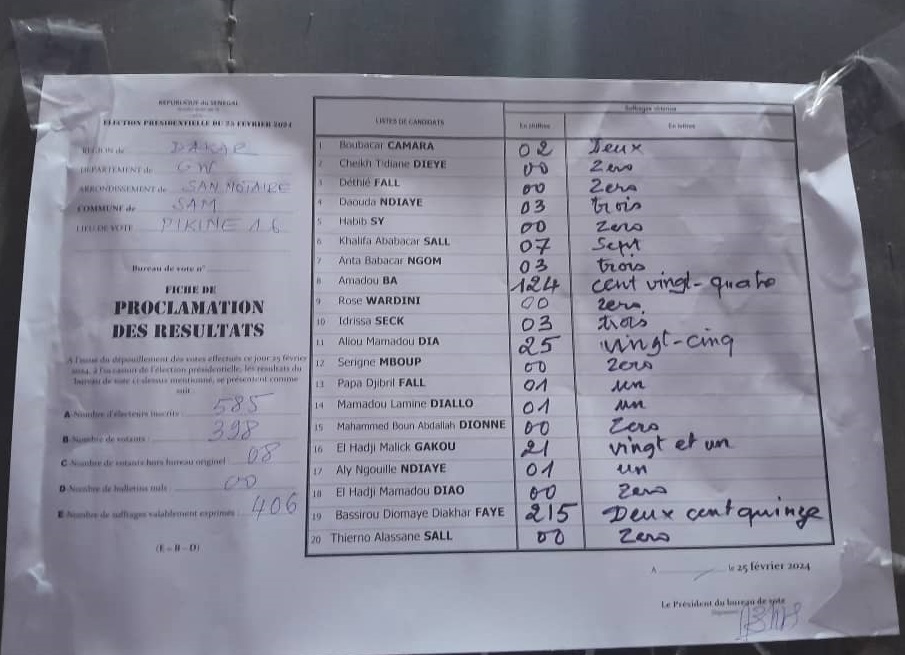 REPUBLIQUE du SENEGAL
ELECTION PRESIDENTIELLE DU 25 FEVRIER 2024
REGION de DAKAR
DEPARTEMENT de GW
ARRONDISSEMENT de SAM NOTAIRE
COMMUNE de SAM
LIEU DE VOTE PIKINE 16
Bureau de vote n°
FICHE DE
PROCLAMATION
DES RESULTATS
A l'issue du dépouillement des votes effectués ce jour 25 février
2024, à l'occasion de l'élection présidentielle, les résultats du
bureau de vote ci-dessus mentionné, se présentent comme
suit :
A-Nombre d'électeurs inscrits : 585
B-Nombre de votants : 398
C-Nombre de votants hors bureau originel 08
D-Nombre de bulletins nuls : 00
E-Nombre de suffrages valablement exprimés : 406
(E = B - D)
LISTES DE CANDIDATS
Suffrages obtenus
En chiffres En lettres
1 Boubacar CAMARA 02 Deux
2 Cheikh Tidiane DIEYE 00 Zero
3 Déthié FALL 00 Zero
4 Daouda NDIAYE 03 trois
5 Habib SY 00 Zero
6 Khalifa Ababacar SALL 07 Sept
7 Anta Babacar NGOM 03 trois
8 Amadou BA 124 cent vingt-quatre
9 Rose WARDINI 00 zero
10 Idrissa SECK 03 trois
11 Aliou Mamadou DIA 25 vingt-cinq
12 Serigne MBOUP 00 zero
13 Papa Djibril FALL 01 un
14 Mamadou Lamine DIALLO 01 un
15 Mahammed Boun Abdallah DIONNE 00 Zero
16 El Hadji Malick GAKOU 21 vingt et un
17 Aly Ngouille NDIAYE 01 un
18 El Hadji Mamadou DIAO 00 Zero
19 Bassirou Diomaye Diakhar FAYE 215 Deux cent quinze
20 Thierno Alassane SALL 00 Zero
A le 25 février 2024
Le Président du bureau de vote